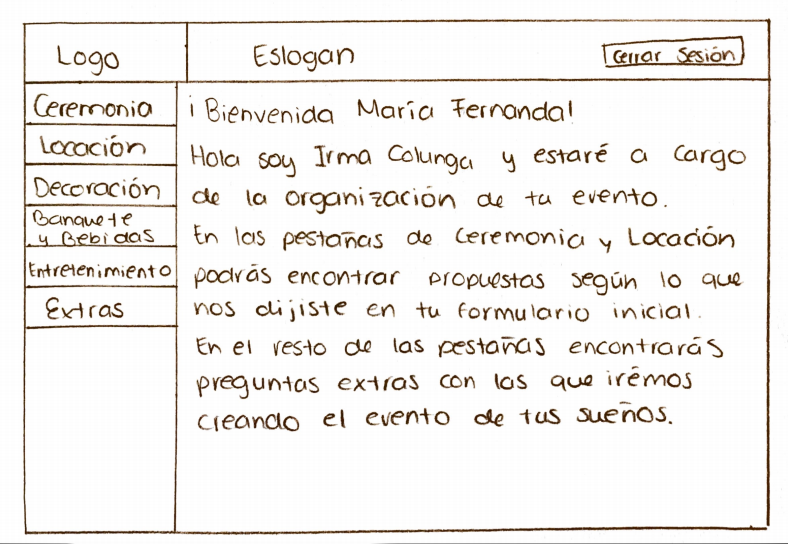 Logo
Eslogan
Cerrar Sesión
Ceremonia
Locación
Decoración
Banquete
y Bebidas
Entretenimiento
Extras
¡Bienvenida María Fernanda!
Hola soy Irma Colunga y estaré a cargo
de la organización de tu evento.
En las pestañas de Ceremonia y Locación
podrás encontrar propuestas según lo que
nos dijiste en tu formulario inicial.
En el resto de las pestañas encontrarás
preguntas extras con las que irémos
creando el evento de tus sueños.